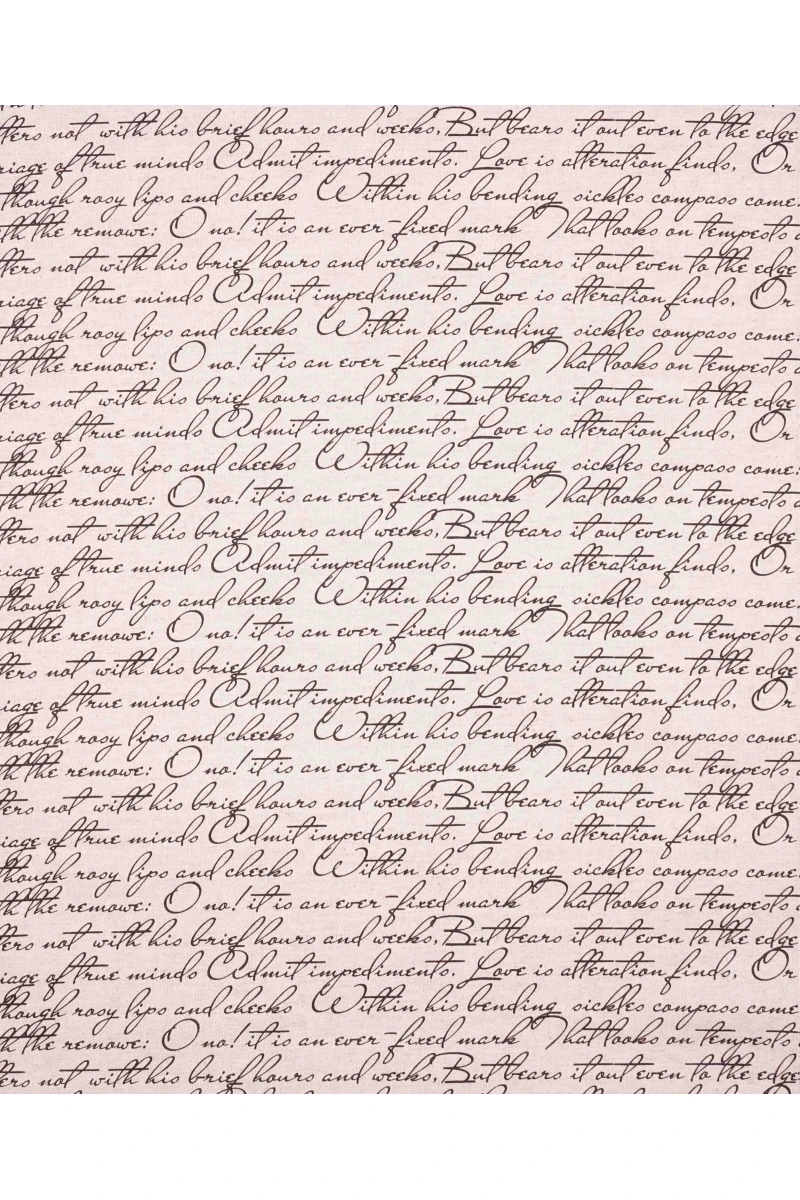 ters not with his brief hours and weeks, But bears it out even to the edge
riage of true minds Admit impediments. Love is alteration finds, Or
though rosy lips and cheeks Within his bending sickles compass come:
th the remowe: O no! it is an ever-fixed mark That looks on tempests
ters not with his brief hours and weeks, But bears it out even to the edge
riage of true minds Admit impediments. Love is alteration finds, Or
though rosy lips and cheeks Within his bending sickles compass come:
th the remowe: O no! it is an ever-fixed mark That looks on tempests
ters not with his brief hours and weeks, But bears it out even to the edge
riage of true minds Admit impediments. Love is alteration finds, Or
though rosy lips and cheeks Within his bending sickles compass come:
th the remowe: O no! it is an ever-fixed mark That looks on tempests
ters not with his brief hours and weeks, But bears it out even to the edge
riage of true minds Admit impediments. Love is alteration finds, Or
though rosy lips and cheeks Within his bending sickles compass come:
th the remowe: O no! it is an ever-fixed mark That looks on tempests
ters not with his brief hours and weeks, But bears it out even to the edge
riage of true minds Admit impediments. Love is alteration finds, Or
though rosy lips and cheeks Within his bending sickles compass come:
th the remowe: O no! it is an ever-fixed mark That looks on tempests
ters not with his brief hours and weeks, But bears it out even to the edge
riage of true minds Admit impediments. Love is alteration finds, Or
though rosy lips and cheeks Within his bending sickles compass come:
th the remowe: O no! it is an ever-fixed mark That looks on tempests
ters not with his brief hours and weeks, But bears it out even to the edge
riage of true minds Admit impediments. Love is alteration finds, Or
though rosy lips and cheeks Within his bending sickles compass come
th the remowe: O no! it is an ever-fixed mark That looks on tempests
ters not with his brief hours and weeks, But bears it out even to the edge